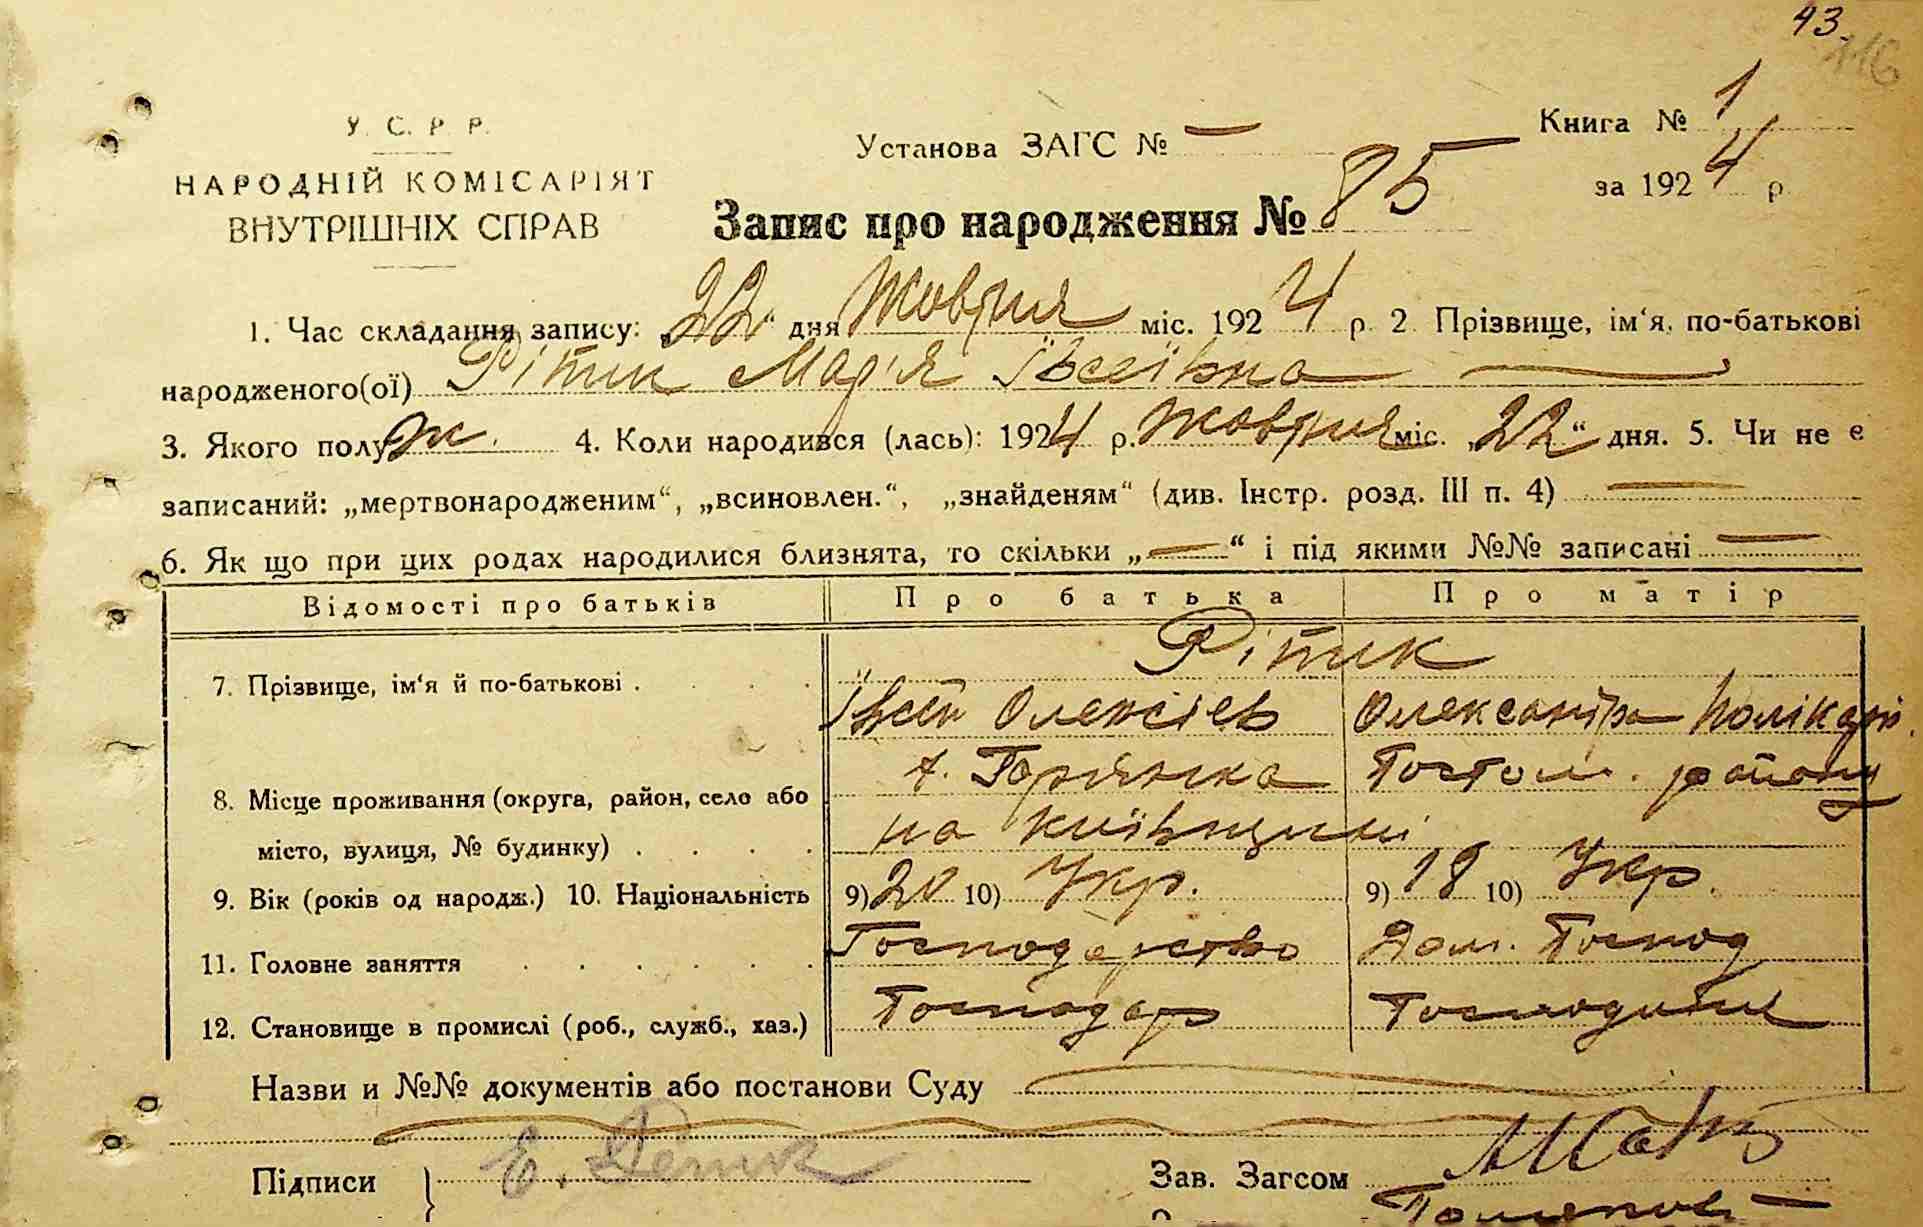 43
116
У. С. Р. Р.
НАРОДНІЙ КОМІСАРІЯТ
ВНУТРІШНІХ СПРАВ
Установа ЗАГС № —
Книга № 1
за 1924 р.
Запис про народження № 85
1. Час складання запису: „22“ дня Жовтня міс. 1924 р. 2 Прізвище, ім‘я, по-батькові
народженого(ої) Рітик Мар'я Івсеївна —
3. Якого полу ж. 4. Коли народився (лась): 1924 р. Жовтня міс. „22“ дня. 5. Чи не є
записаний: „мертвонародженим“, „всиновлен.“, „знайденям“ (див. Інстр. розд. III п. 4) —
6. Як що при цих родах народилися близнята, то скільки „—“ і під якими №№ записані —
Відомості про батьків Про батька Про матір
Рітик
7. Прізвище, ім‘я й по-батькові . . . .
Івсей Олексієв Олександра Полікарп.
с. Горянка Гостом. району
8. Місце проживання (округа, район, село або
місто, вулиця, № будинку) . . . . на Київщині
9. Вік (років од народж.) 10. Національність 9) 20 10) Укр. 9) 18 10) Укр.
11. Головне заняття . . . . . . Господарство Дом. Господ
12. Становище в промислі (роб., служб., хаз.) Господар Господиня
Назви и №№ документів або постанови Суду
Підписи } Е. Ретик
Зав. Загсом